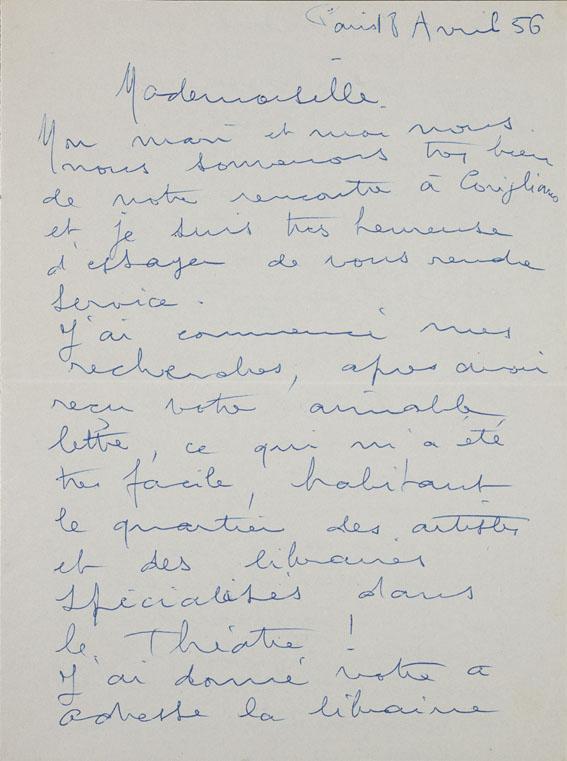 Paris 13 Avril 56
Mademoiselle.
Mon mari et moi nous
nous souvenons très bien
de notre rencontre à Corigliano
et je suis très heureuse
d'essayer de vous rendre
service.
J'ai commencé mes
recherches, apres avoir
reçu votre aimable
lettre, ce qui m'a été
tres facile, habitant
le quartier des artistes
et des libraires
spécialisés dans
le Théâtre !
J'ai donné votre a
adresse la libraire